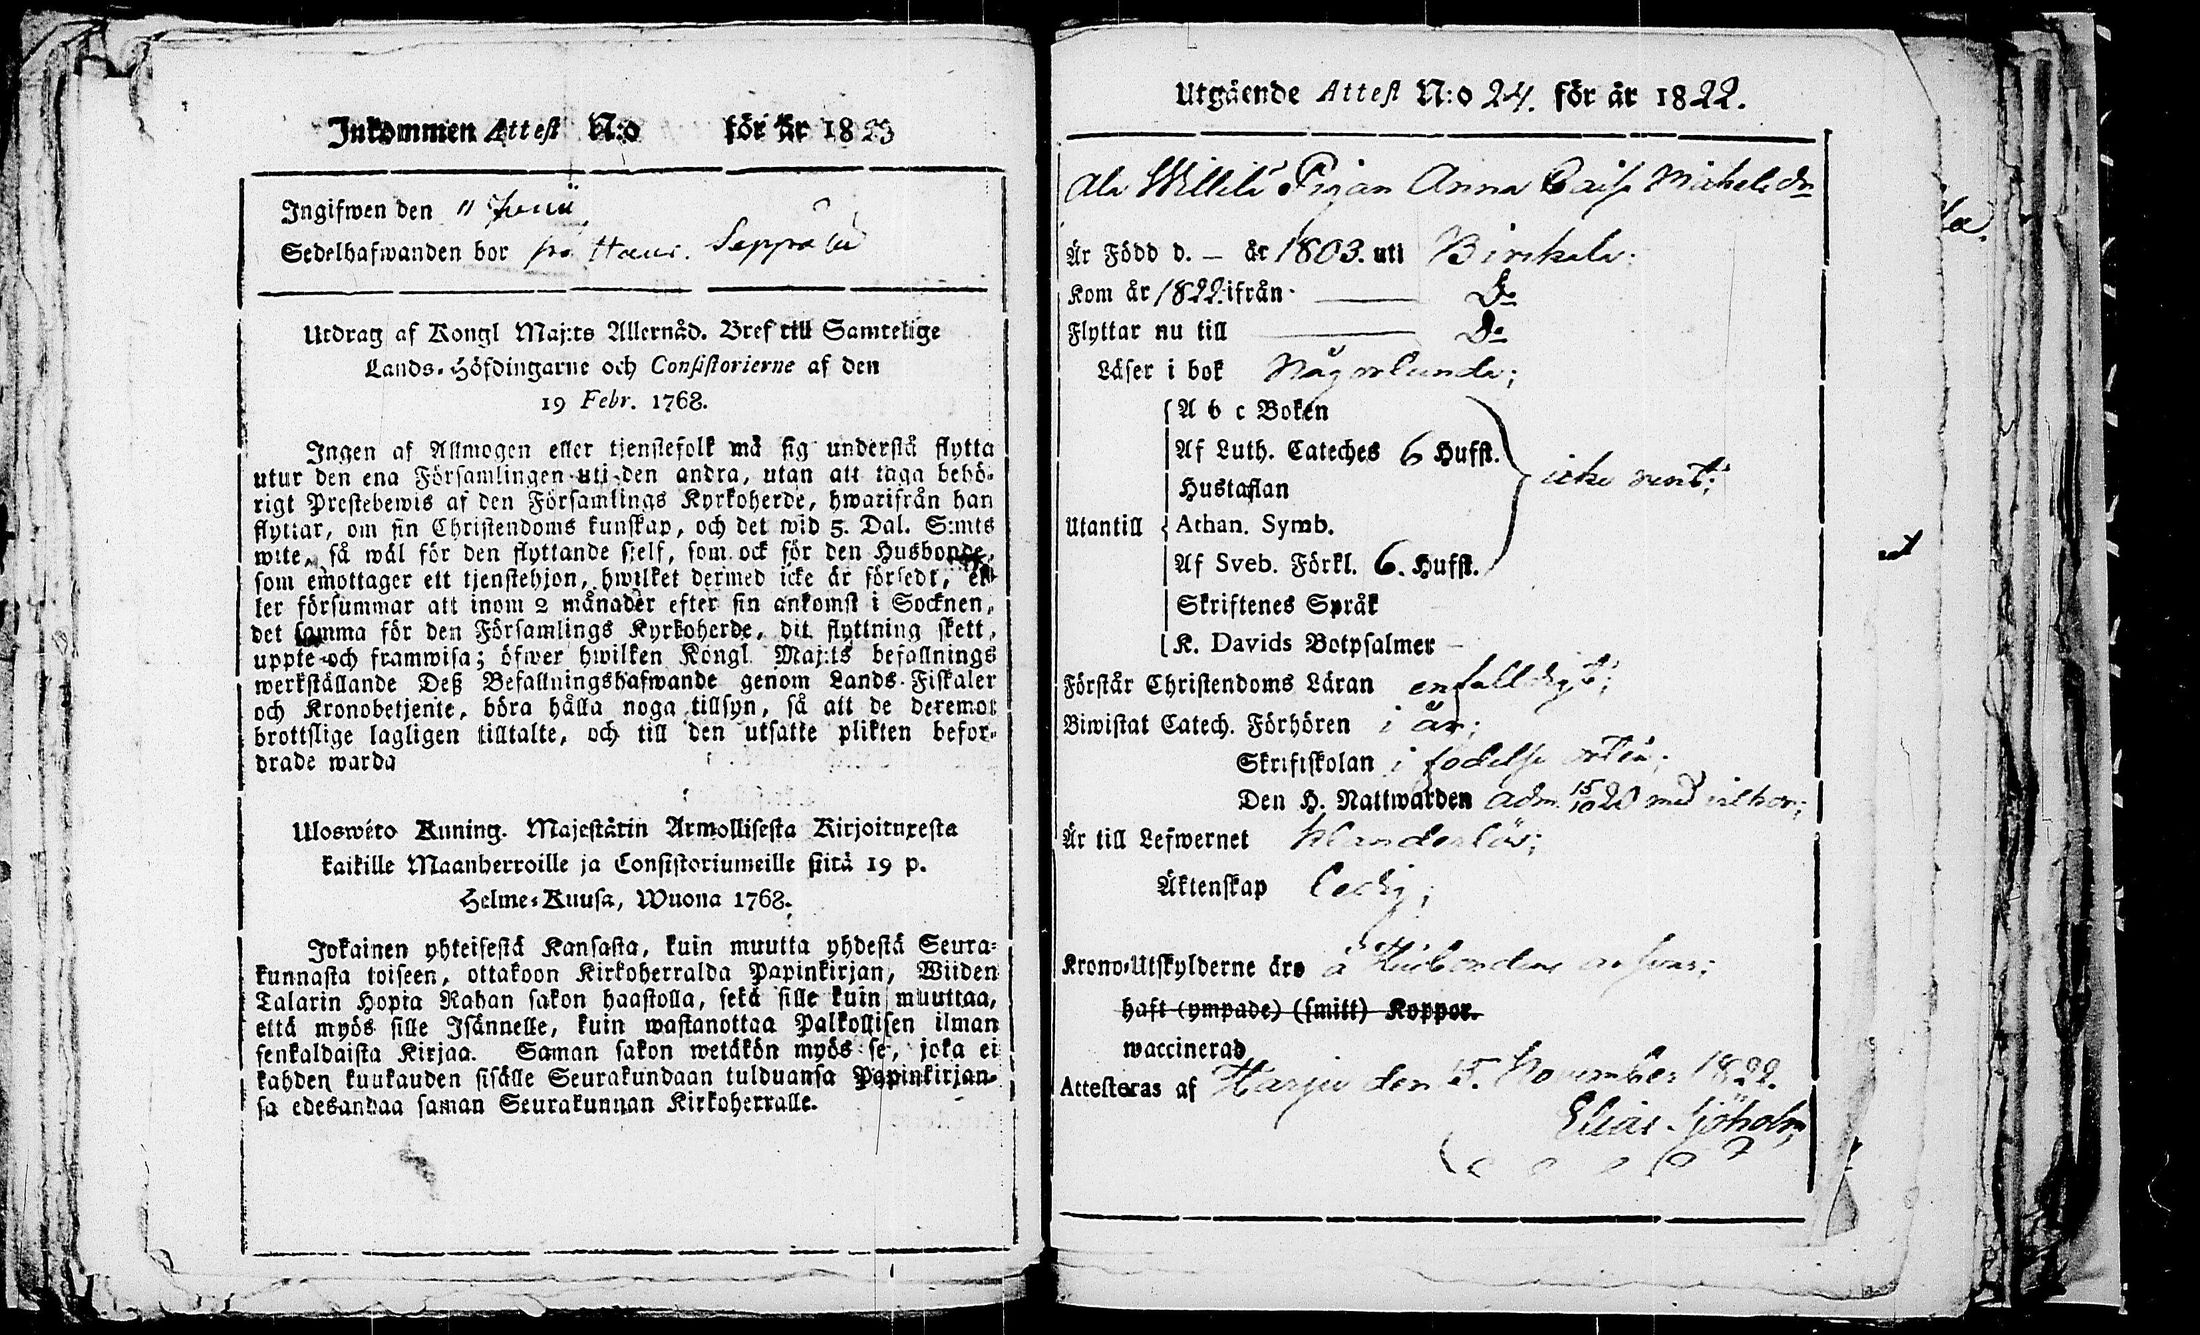 Inkommen Attest N:o för år 1823
Ingifwen den 11 Junii
Sedelhafwanden bor Seppälä
Utdrag af Kongl Maj:ts Allernåd. Bref till Samtelige
Lands-Höfdingarne och Consistorierne af den
19 Febr. 1768.
Ingen af Allmogen eller tjenstefolk må sig understå flytta
utur den ena Församlingen uti den andra, utan att taga behö-
rigt Prestebewis af den Församlings Kyrkoherde, hwarifrån han
flyttar, om sin Christendoms kunskap, och det wid 5. Dal. S:mts
wite, så wäl för den flyttande sjelf, som ock för den Husbonde,
som emottager ett tjenstehjon, hwilket dermed icke är försedt, el-
ler försummar att inom 2 månader efter sin ankomst i Socknen,
det samma för den Församlings Kyrkoherde, dit flyttning skett,
uppte och framwisa; öfwer hwilken Kongl Maj:ts befallnings
werkställande Deß Befallningshafwande genom Lands-Fiskaler
och Kronobetjente, böra hålla noga tillsyn, så att de deremot
brottslige lagligen tilltalte, och till den utsatte plikten befor-
drade warda
Uloswéto Kuning. Majestätin Armollisesta Kirjoituxesta
kaikille Maanherroille ja Consistoriumeille siitä 19 p.
Helme-Kuusa, Wuona 1768.
Jokainen yhteisestä Kansasta, kuin muutta yhdestä Seura-
kunnasta toiseen, ottakoon Kirkoherralda Papinkirjan, Wiiden
Talarin Hopia Rahan sakon haastolla, sekä sille kuin muuttaa,
että myös sille Isännelle, kuin wastanottaa Palkollisen ilman
senkaldaista Kirjaa. Saman sakon wetäkön myös se, joka ei
kahden kuukauden sisälle Seurakundaan tulduansa Papinkirjan-
sa edesandaa saman Seurakunnan Kirkoherralle.
Utgående Attest N:o 24. för år 1822.
Ala Willilä Pigan Anna Caisa Michelsdr
Är Född d. — år 1803. uti Birkala;
Kom år 1822. ifrån — Do
Flyttar nu till — Do
Läser i bok Någorlunda;
A b c Boken
Af Luth. Cateches 6 Hufst.
icke rent;
Hustaflan
Utantill Athan. Symb.
Af Sveb. Förkl. 6. Hufst.
Skriftenes Språk
K. Davids Botpsalmer —
Förstår Christendoms Läran enfalldigt;
Biwistat Catech. Förhören i år;
Skriftskolan i födelse orten;
Den H. Nattwarden adm. 15/10 20 med wilkor;
Är till Lefwernet klanderlös;
Äktenskap Ledig;
Krono-Utskylderne äro å Husbondens ansvar;
haft (ympade) (smitt) Koppor.
waccinerad
Attesteras af Harju den 15. November 1822.
Elias Sjöholm,